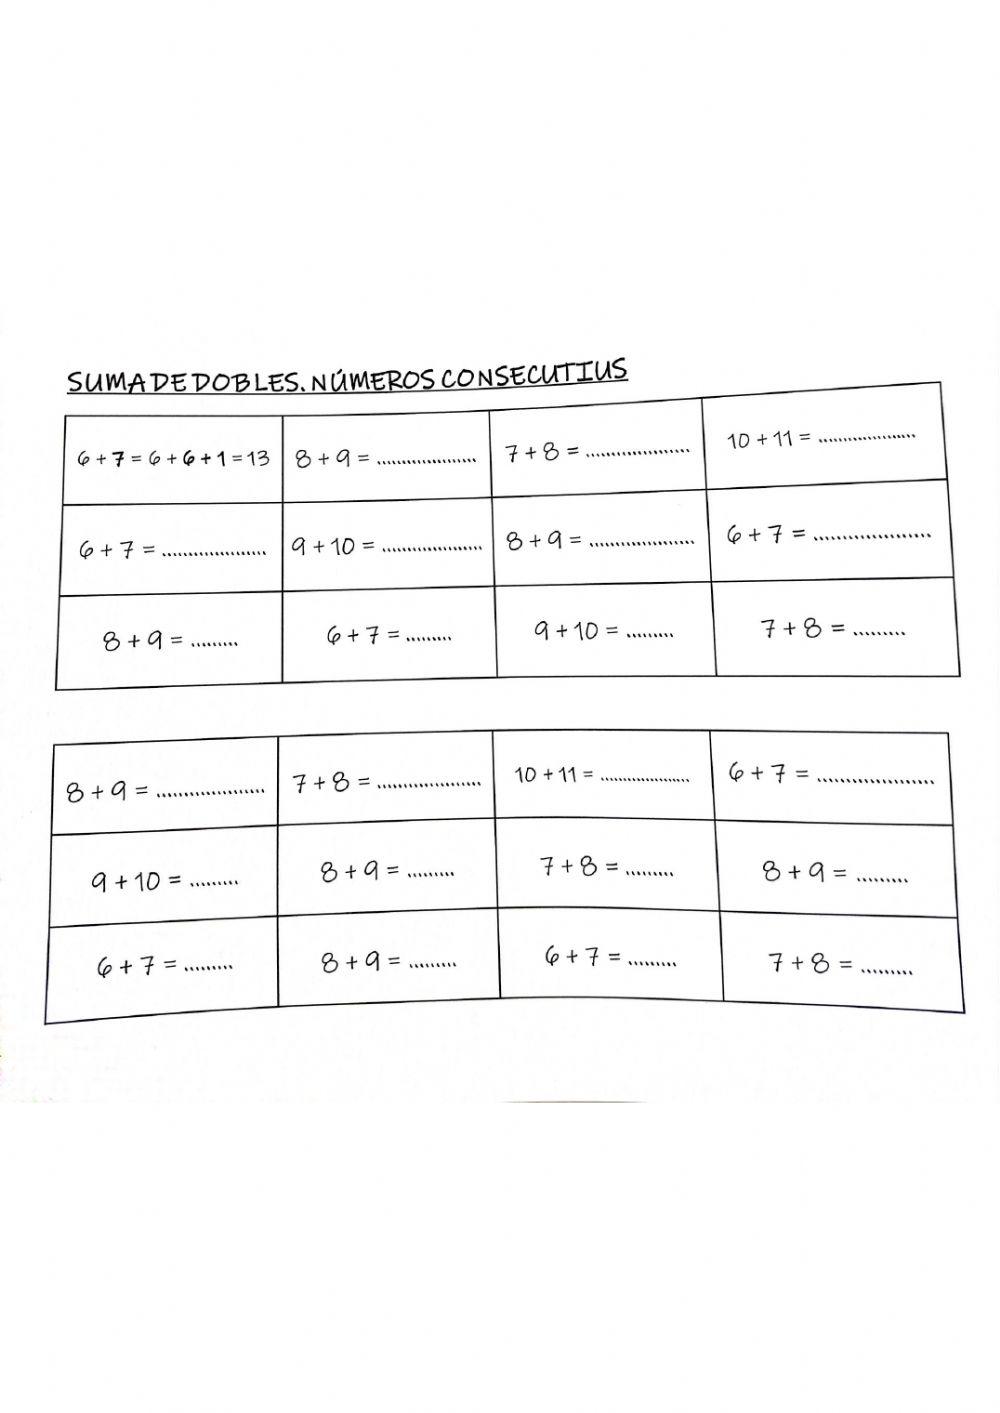 SUMA DE DOBLES. NÚMEROS CONSECUTIUS
6 + 7 = 6 + 6 + 1 = 13
8 + 9 = .....................
7 + 8 = .....................
10 + 11 = .....................
6 + 7 = .....................
9 + 10 = .....................
8 + 9 = .....................
6 + 7 = .....................
8 + 9 = .........
6 + 7 = .........
9 + 10 = .........
7 + 8 = .........
8 + 9 = .....................
7 + 8 = .....................
10 + 11 = .....................
6 + 7 = .....................
9 + 10 = .........
8 + 9 = .........
7 + 8 = .........
8 + 9 = .........
6 + 7 = .........
8 + 9 = .........
6 + 7 = .........
7 + 8 = .........